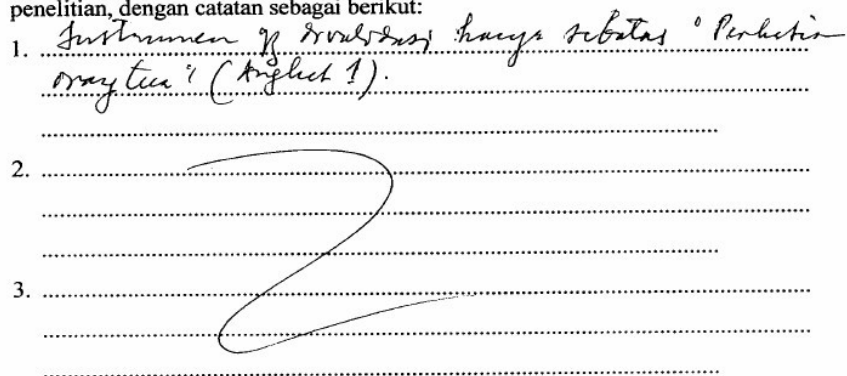 penelitian, dengan catatan sebagai berikut:
1. Instrumen yg divalidasi hanya sebatas "Perhatian
orang tua" (Angket 1).
2.
3.